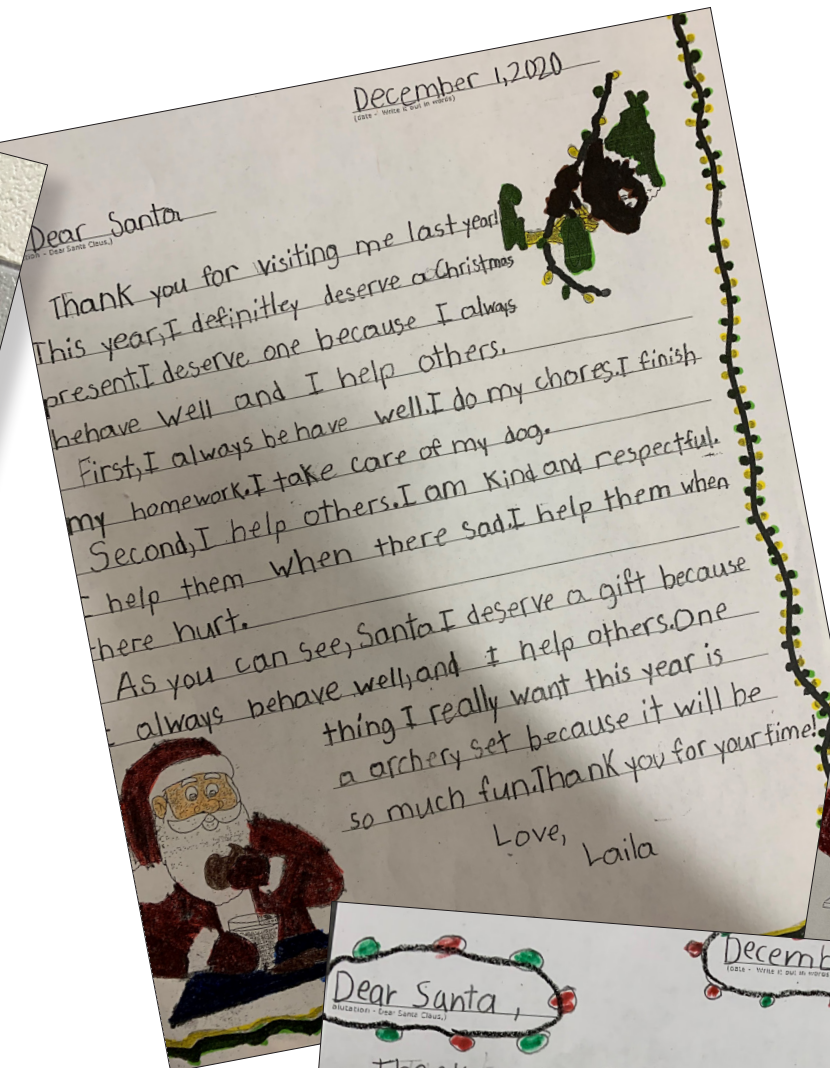 December 1,2020
(date - Write it out in words)
Dear Santa
Dear Santa Claus,)
Thank you for visiting me last year!
This year,I definitley deserve a Christmas
present.I deserve one because I always
behave well and I help others.
First,I always behave well.I do my chores.I finish
my homework.I take care of my dog.
Second,I help others.I am kind and respectful.
I help them when there sad.I help them when
there hurt.
As you can see,Santa I deserve a gift because
I always behave well,and I help others.One
thing I really want this year is
a archery set because it will be
so much fun.Thank you for your time!
Love,
Laila
Decemb
(date - Write it out in words
Dear Santa,
alutation - Dear Santa Claus,)